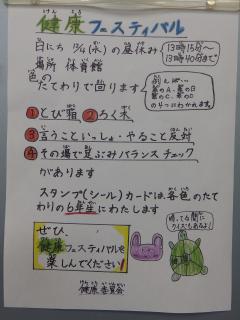 けん こう
健康フェスティバル
日にち 12/14(水)の昼休み
13時15分〜
13時40分まで
場所 体育館
色の
たてわりで回ります
例えば…
の4つにわかれます。
①とび箱 ②ろく木
③言うこといっしょ・やること反対
④その場で足ぶみバランスチェック
があります
スタンプ(シール)カードは各色のたて
わりの6年生にわたします
ぜひ、
健康フェスティバルを
楽しんでください!
健康委員会